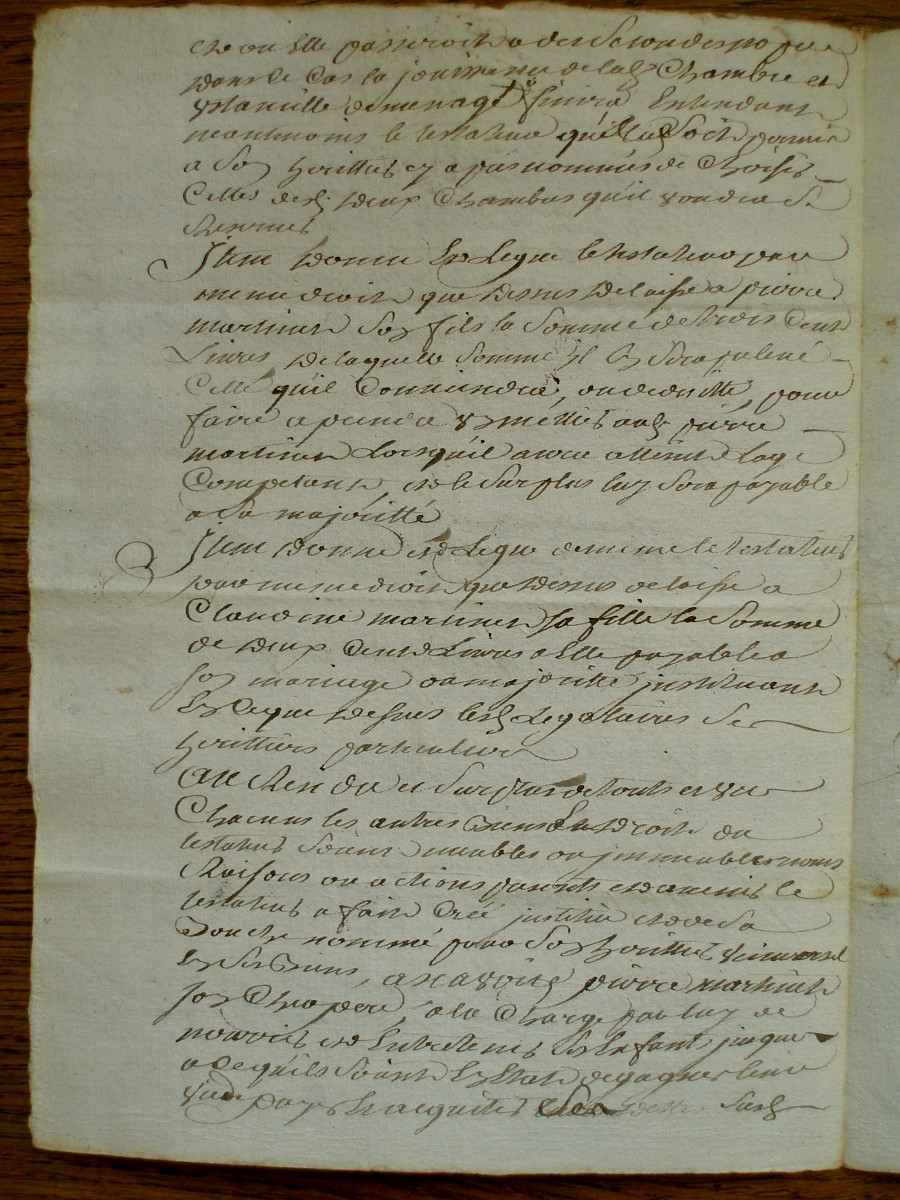 et ou Elle passeroit a des secondes nopces
dans ce cas la jouissance de lad Chambre et
Ustancille de menage finira Entendant
neantmoins le testateur quil soit permis
a son heritier cy apres nommé de Choisir
Celles desd deux Chambres quil voudra se
Reserver
Item donne et Legue le testateur par
meme droit que dessus delaisse a pierre
martinet son fils la somme de trois Cent
Livres de laquelle somme il luy sera delivré
Celle quil Conviendra, pour
faire apprendre Un mettier aud pierre
martinet Lorsquil aura atteint lage
Competant, et le surplus luy sera payable
a sa majoritté
Item donne et Legue de meme le testateur
par meme droit que dessus delaisse a
Claudine martinet sa fille la somme
de deux Cent Livres a Elle payable a
son mariage ou majorité instituant
En ce que dessus lesd Legataires ses
heritiers particuliers
Au Residu et surplus de touts et un
Chacuns les autres Biens Et Droits du
testateur soient meubles ou immeubles noms
Raisons ou actions presents et avenir le
testateur a fait Créé institué et de sa
Bouche nommé pour son heritier Universel
En ses Biens, a scavoir pierre martinet
son Cher pere, a la Charge par luy de
nourrir et Entretenir ses Enfants jusque
a ce quils soient En Etat de gagner leur
vie payer Et acquitter dettes susd